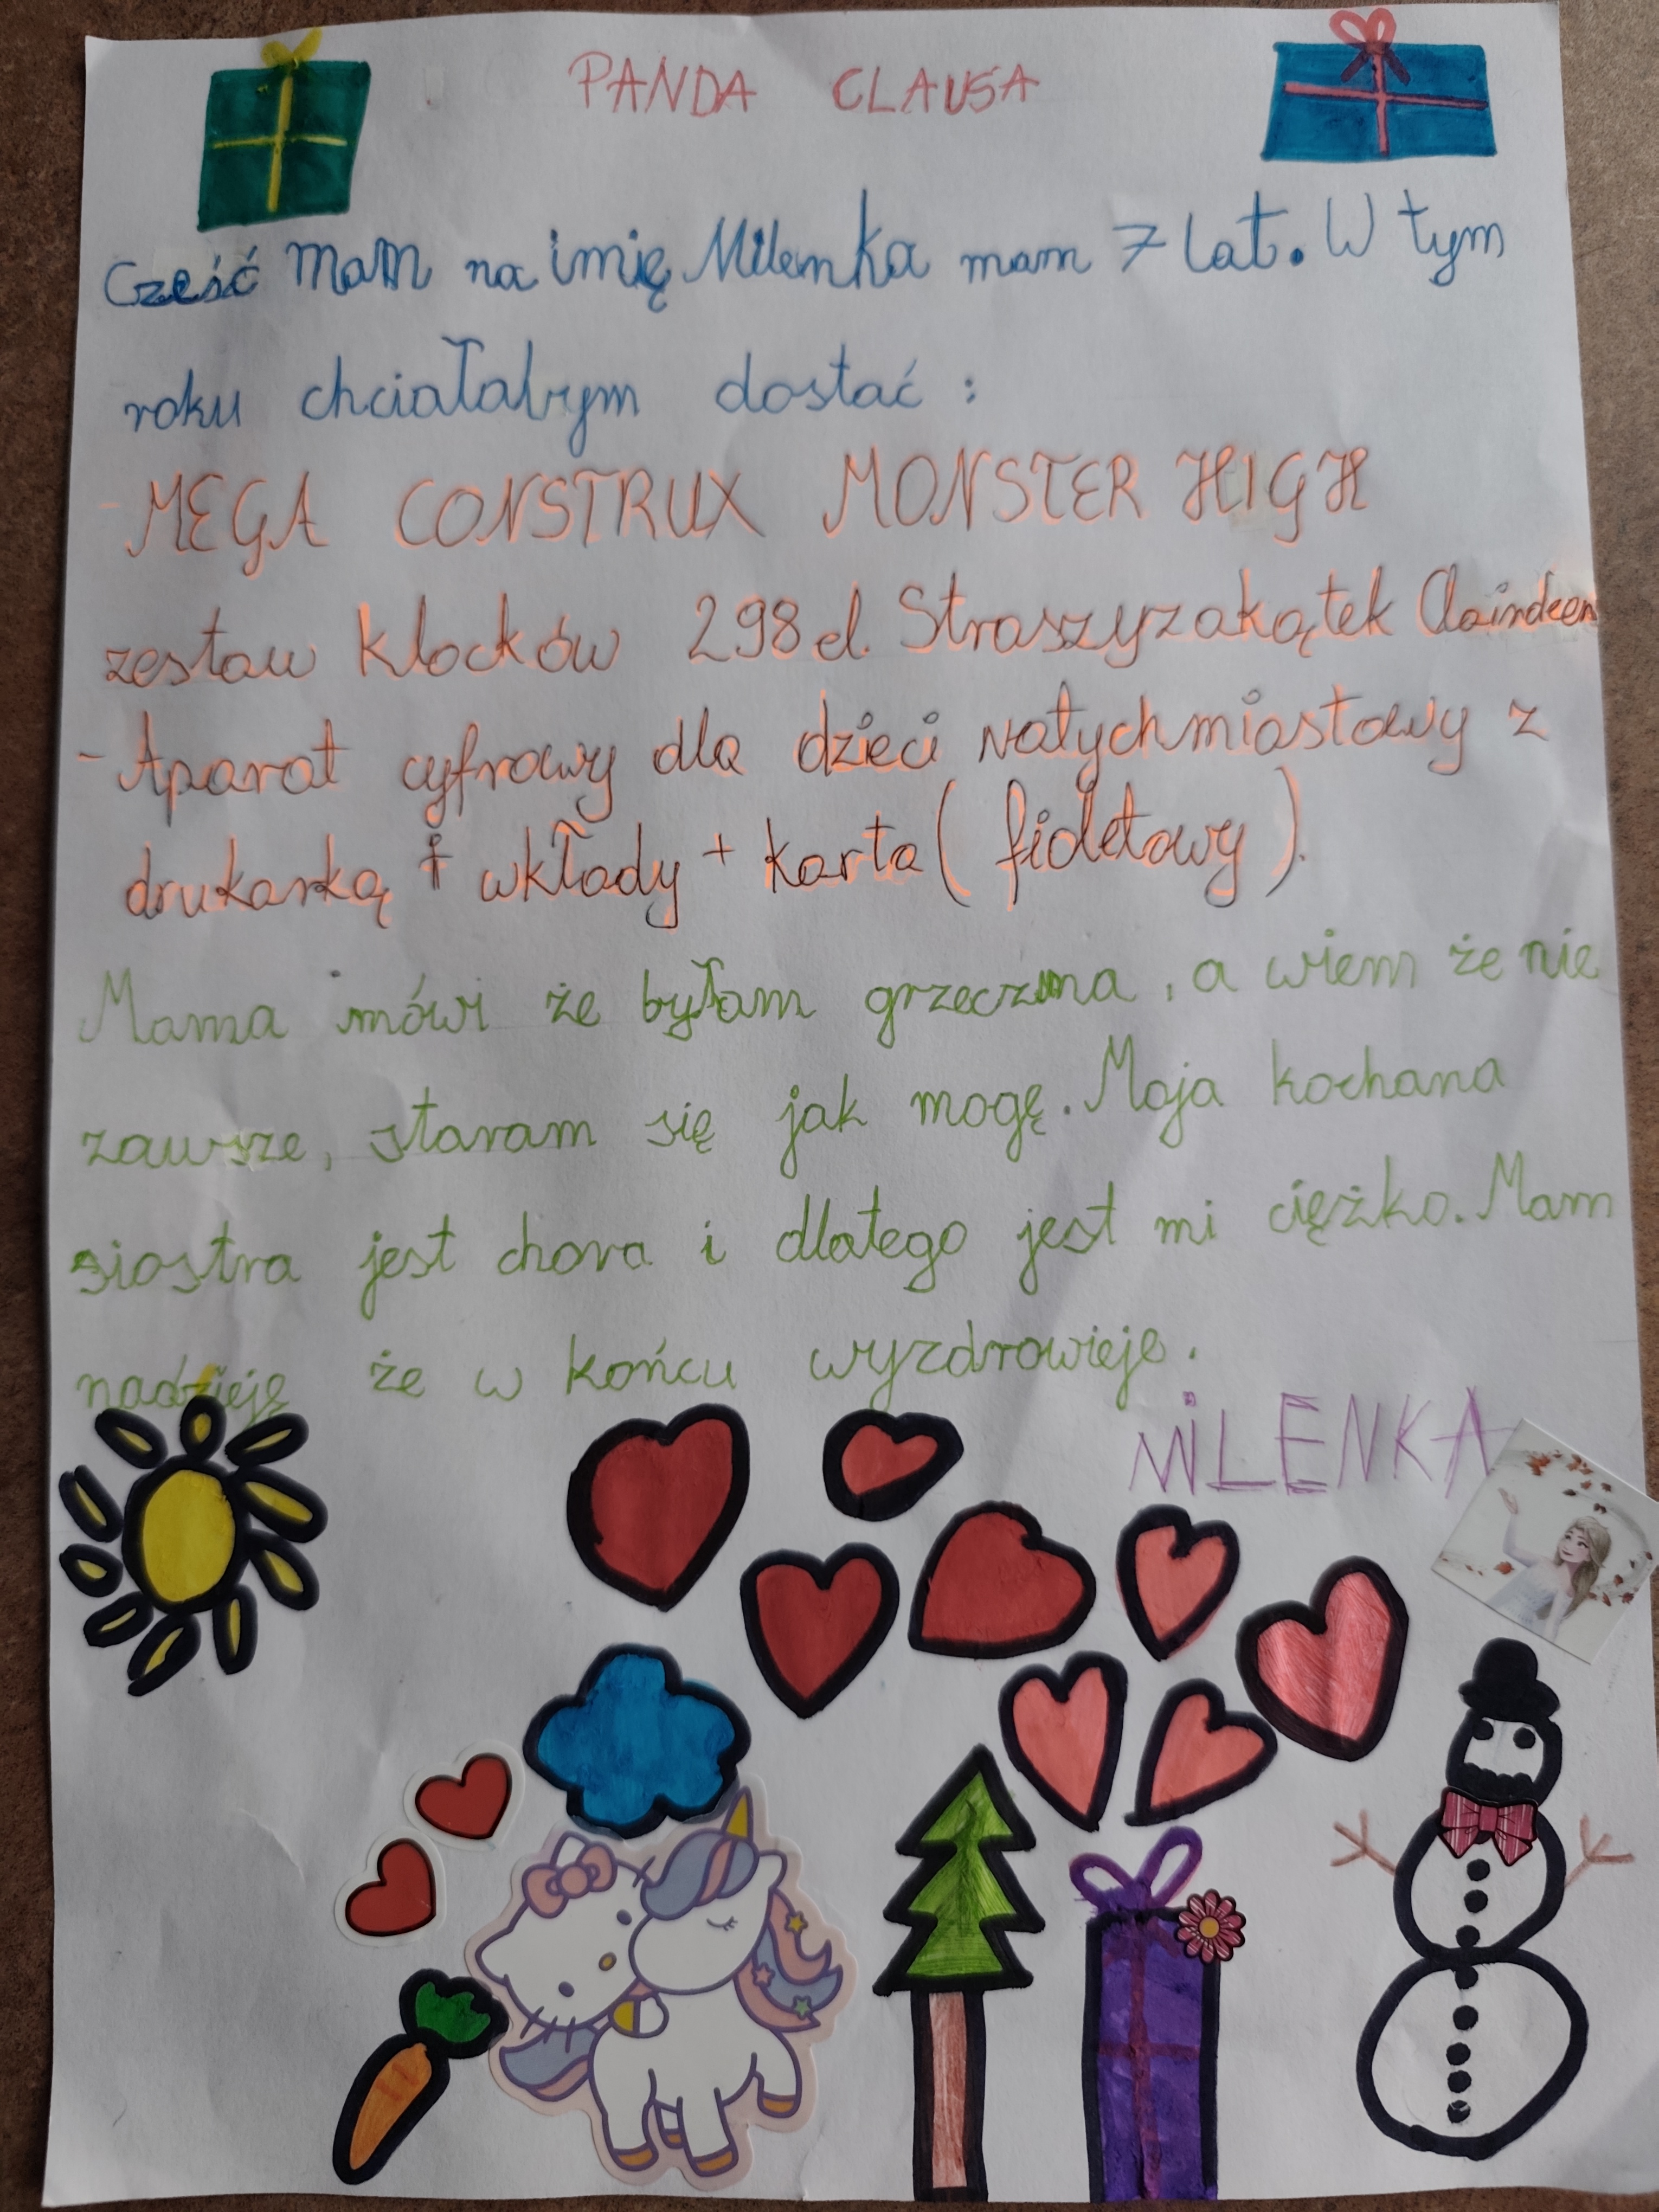 PANDA CLAUSA
Cześć mam na imię Milenka mam 7 lat. W tym
roku chciałabym dostać :
- MEGA CONSTRUX MONSTER HIGH
zestaw klocków 298 el. Straszyzakątek Clawdeen
- Aparat cyfrowy dla dzieci natychmiastowy z
drukarką + wkłady + karta ( fioletowy ).
Mama mówi że byłam grzeczna, a wiem że nie
zawsze, staram się jak mogę. Moja kochana
siostra jest chora i dlatego jest mi ciężko. Mam
nadzieję że w końcu wyzdrowieje.
MiLENKA